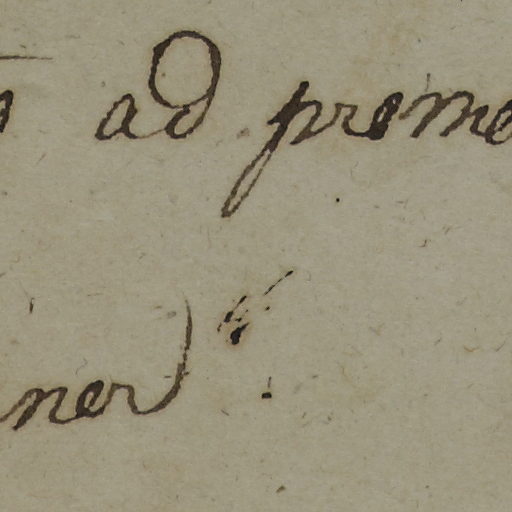 ad preme
ner